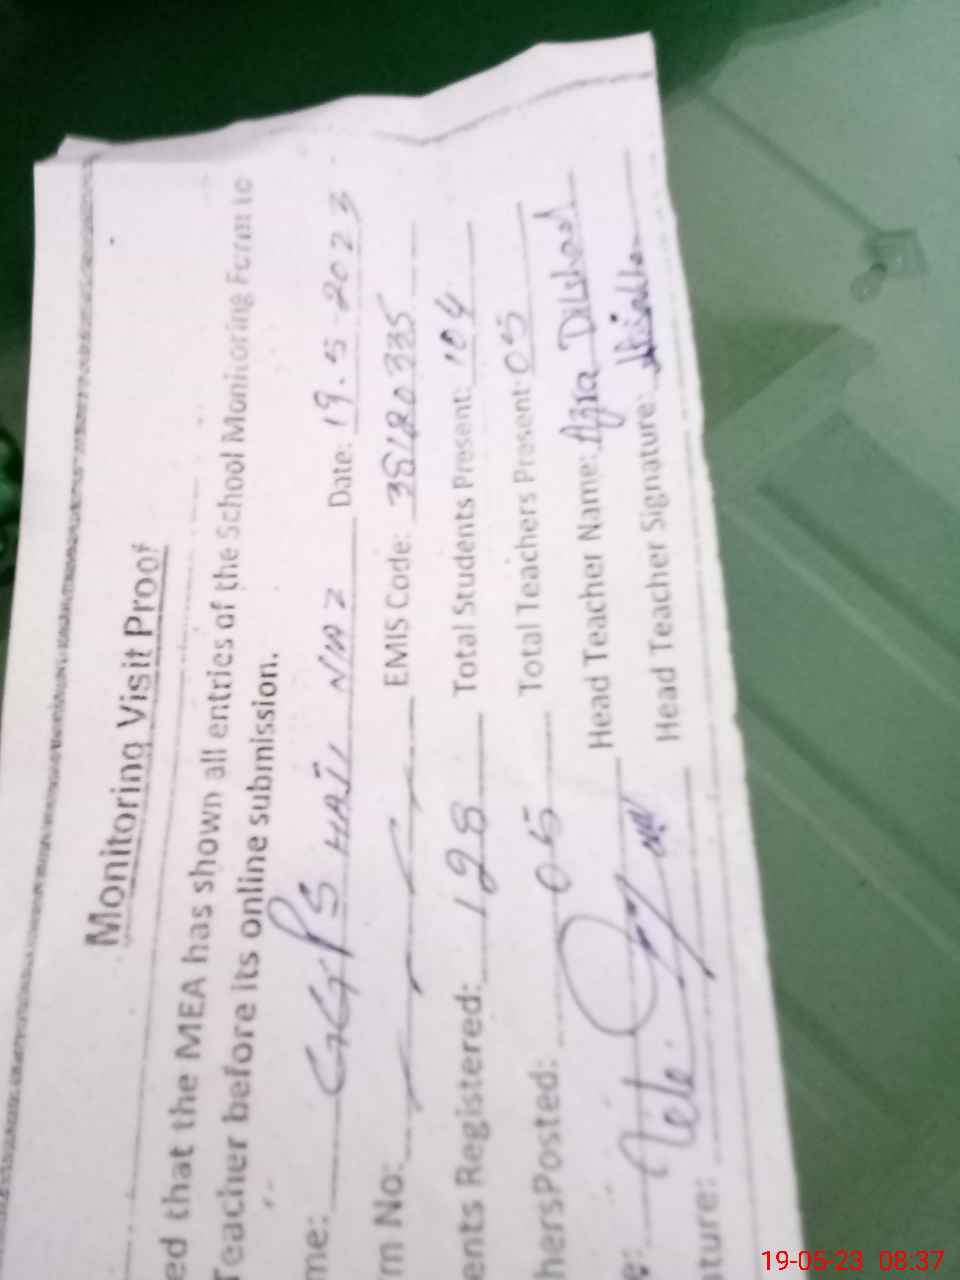 Monitoring Visit Proof
ed that the MEA has shown all entries of the School Monitoring Form to
Teacher before its online submission.
me: GGPS HAJI NIAZ Date: 19.5.2023
m No: EMIS Code: 38120335
ents Registered: 128 Total Students Present: 104
hersPosted: 05 Total Teachers Present: 05
e: Head Teacher Name: Azra Dilshad
ture: Head Teacher Signature:
19-05-23 08:37